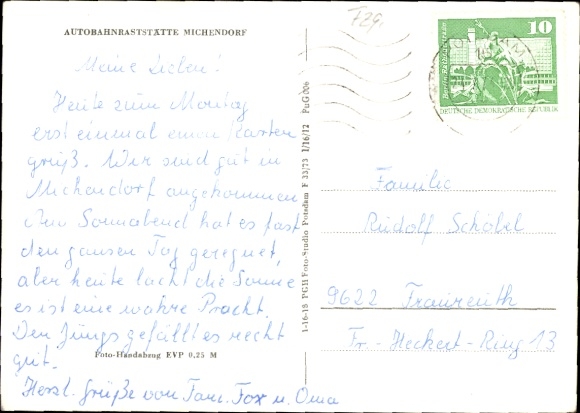 AUTOBAHNRASTSTÄTTE MICHENDORF
Meine Lieben!
Heute zum Montag
erst einmal einen Karten
gruß. Wir sind gut in
Michendorf angekommen
Am Sonnabend hat es fast
den ganzen Tag geregnet,
aber heute lacht die Sonne
es ist eine wahre Pracht.
Den Jungs gefällt es recht
gut.
Foto-Handabzug EVP 0,25 M
Herzl. Grüße von Fam. Fox u. Oma
1-16-18 PGH Foto-Studio Potsdam F 33/73 1/16/12 PuG 006
FZg.
10
DEUTSCHE DEMOKRATISCHE REPUBLIK
Familie
Rudolf Schöbel
9622 Fraureuth
Fr.-Heckert-Ring 13